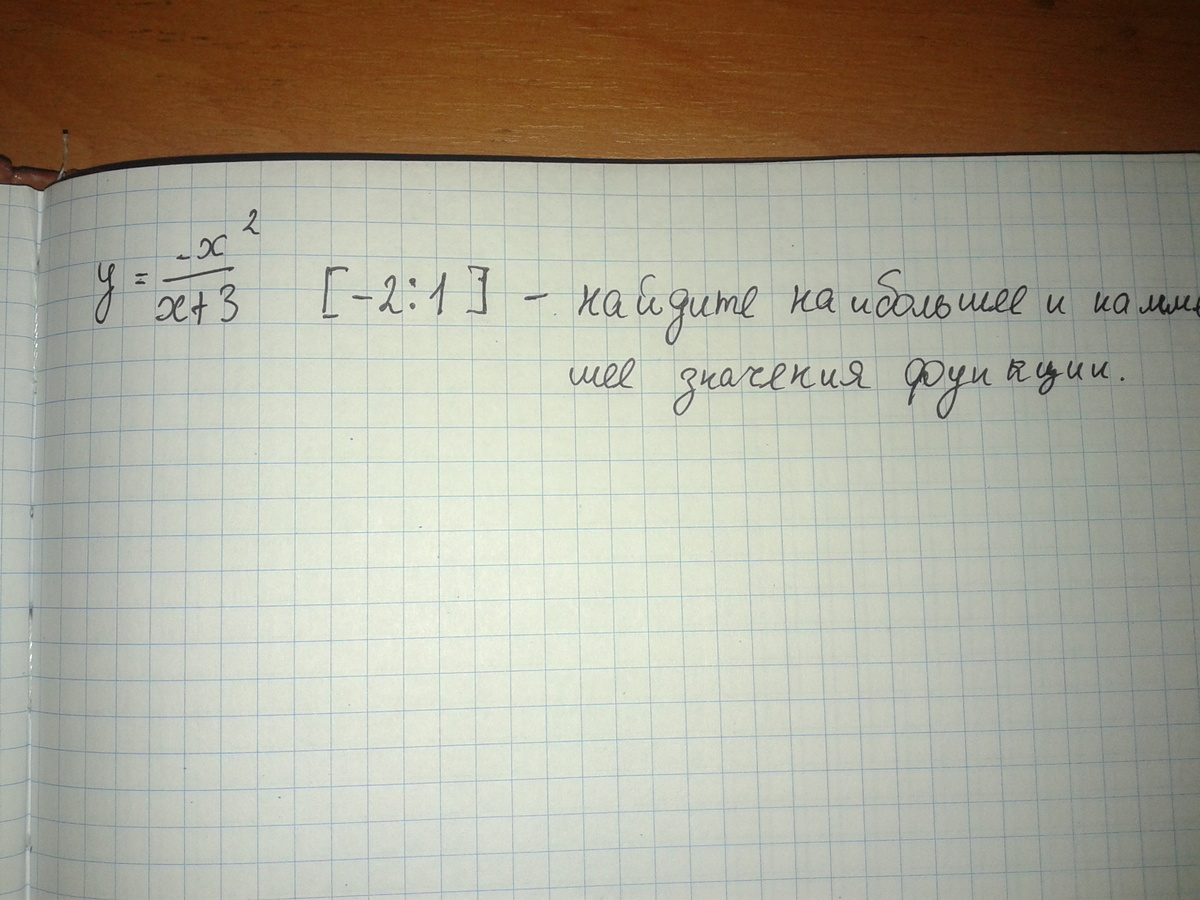 y = -x²/(x+3) [-2:1] - найдите наибольшее и
шее значения функции.